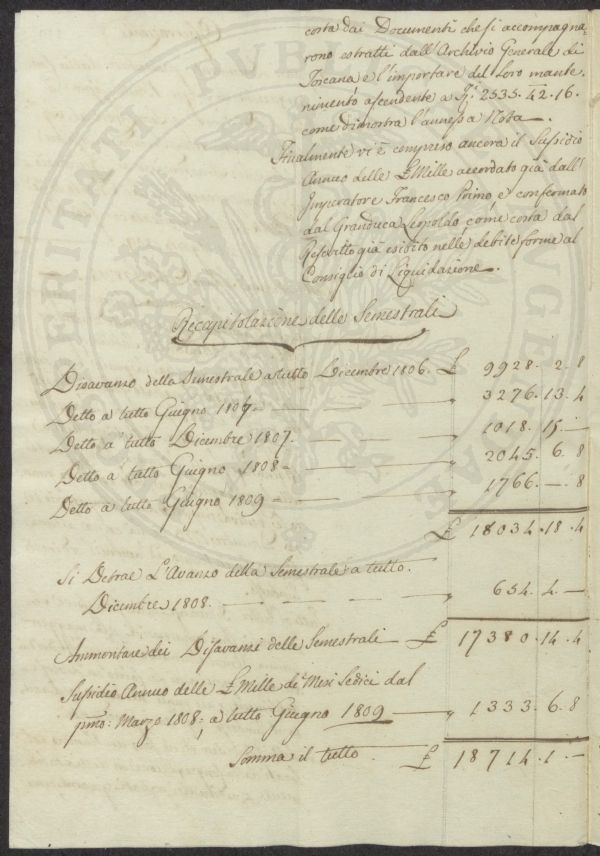 costa dai Documenti che si accompagna-
rono estratti dall'Archivio Generale di
Toscana e l'importare del Loro mante-
nimento ascendente a £ 2535. 42. 16.
come dimostra l'annessa Nota.
Finalmente vi è compreso ancora il Sussidio
Annuo delle £ Mille accordato già dall'
Imperatore Francesco Primo e confermato
dal Granduca Leopoldo, come costa dal
Rescritto già esibito nelle debite forme al
Consiglio di Liquidazione.
Recapitolazione delle Semestrali
Disavanzo della Semestrale a tutto Dicembre 1806. £ 9928. 2. 8
Detto a tutto Giugno 1807 — — — „ 3276. 13. 4
Detto a tutto Dicembre 1807. — — — „ 1018. 15. —
Detto a tutto Giugno 1808 — — — „ 2045. 6. 8
Detto a tutto Giugno 1809 — — — „ 1766. —. 8
£ 18034. 18. 4
Si Detrae L'Avanzo della Semestrale a tutto.
Dicembre 1808. — — — „ 654. 4. —
Ammontare dei Disavanzi delle Semestrali — £ 17380. 14. 4
Sussidio Annuo delle £ Mille di Mesi Sedici dal
pmo: Marzo 1808; a tutto Giugno 1809 — „ 1333. 6. 8
Somma il tutto £ 18714. 1. —